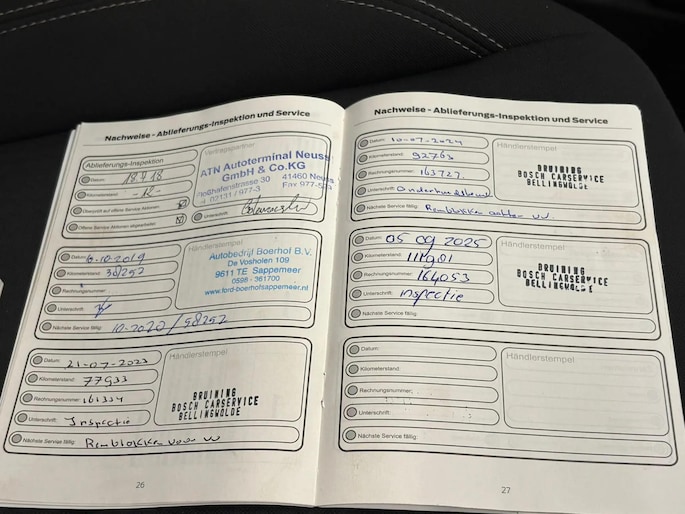 Nachweise - Ablieferungs-Inspektion und Service
Ablieferungs-Inspektion
Datum: 18.9.18
Kilometerstand: -12-
Übergeführt auf offene Service Aktionen:
Offene Service Aktionen abgearbeitet:
Vertragspartner
ATN Autoterminal Neuss
GmbH & Co.KG
Floßhafenstrasse 30 41460 Neuss
Tel. 02131 / 977-3 Fax 977-5
Unterschrift:
Datum: 6-10-2019
Kilometerstand: 38252
Rechnungsnummer:
Unterschrift:
Nächste Service fällig: 10-2020 / 58252
Händlerstempel
Autobedrijf Boerhof B.V.
De Vosholen 109
9611 TE Sappemeer
0598 - 361700
www.ford-boerhofsappemeer.nl
Datum: 21-07-2023
Kilometerstand: 77933
Rechnungsnummer: 161334
Unterschrift: Inspectie
Nächste Service fällig: Remblokken voor vv
Händlerstempel
BRUINING
BOSCH CARSERVICE
BELLINGWOLDE
26
Nachweise - Ablieferungs-Inspektion und Service
Datum: 10-07-2024
Kilometerstand: 92763
Rechnungsnummer: 163727.
Unterschrift: Onderhoudsbeurt
Nächste Service fällig: Remblokken achter vv.
Händlerstempel
BRUINING
BOSCH CARSERVICE
BELLINGWOLDE
Datum: 05 09 2025
Kilometerstand: 111901
Rechnungsnummer: 164053
Unterschrift: inspectie
Nächste Service fällig:
Händlerstempel
BRUINING
BOSCH CARSERVICE
BELLINGWOLDE
Datum:
Kilometerstand:
Rechnungsnummer:
Unterschrift:
Nächste Service fällig:
Händlerstempel
27